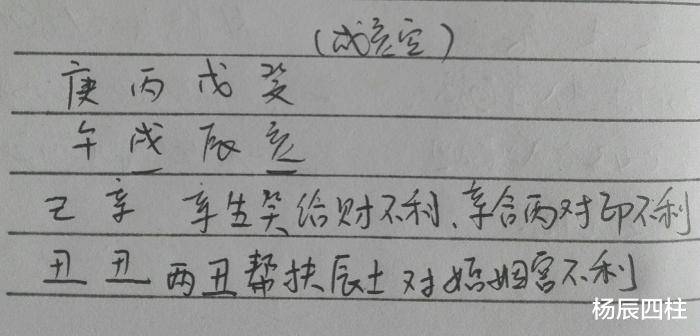 (戌亥空)
庚 丙 戊 癸
午 戌 辰 亥
己 辛 辛生癸给财不利、辛合丙对印不利
丑 丑 两丑帮扶辰土对婚姻宫不利
杨辰四柱